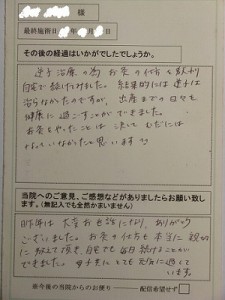 様
最終施術日
その後の経過はいかがでしたでしょうか。
逆子治療の為 お灸の仕方も教わり
自宅で続けてみました。結果的には逆子は
治らなかったのですが、出産までの日々を
健康に過ごすことができました。
お灸をやったことは決してむだには
なっていなかったと思います
当院へのご意見、ご感想などがありましたらお願い致し
ます。(無記入でも全然かまいません)
昨年は大変お世話になり、ありがとう
ございました。お灸の仕方も本当に親切
に教えて頂き、自宅でも毎日続けることが
できました。母子共にとても元気に過ごして
います。
最今後の当院からのお便り
配信希望せず